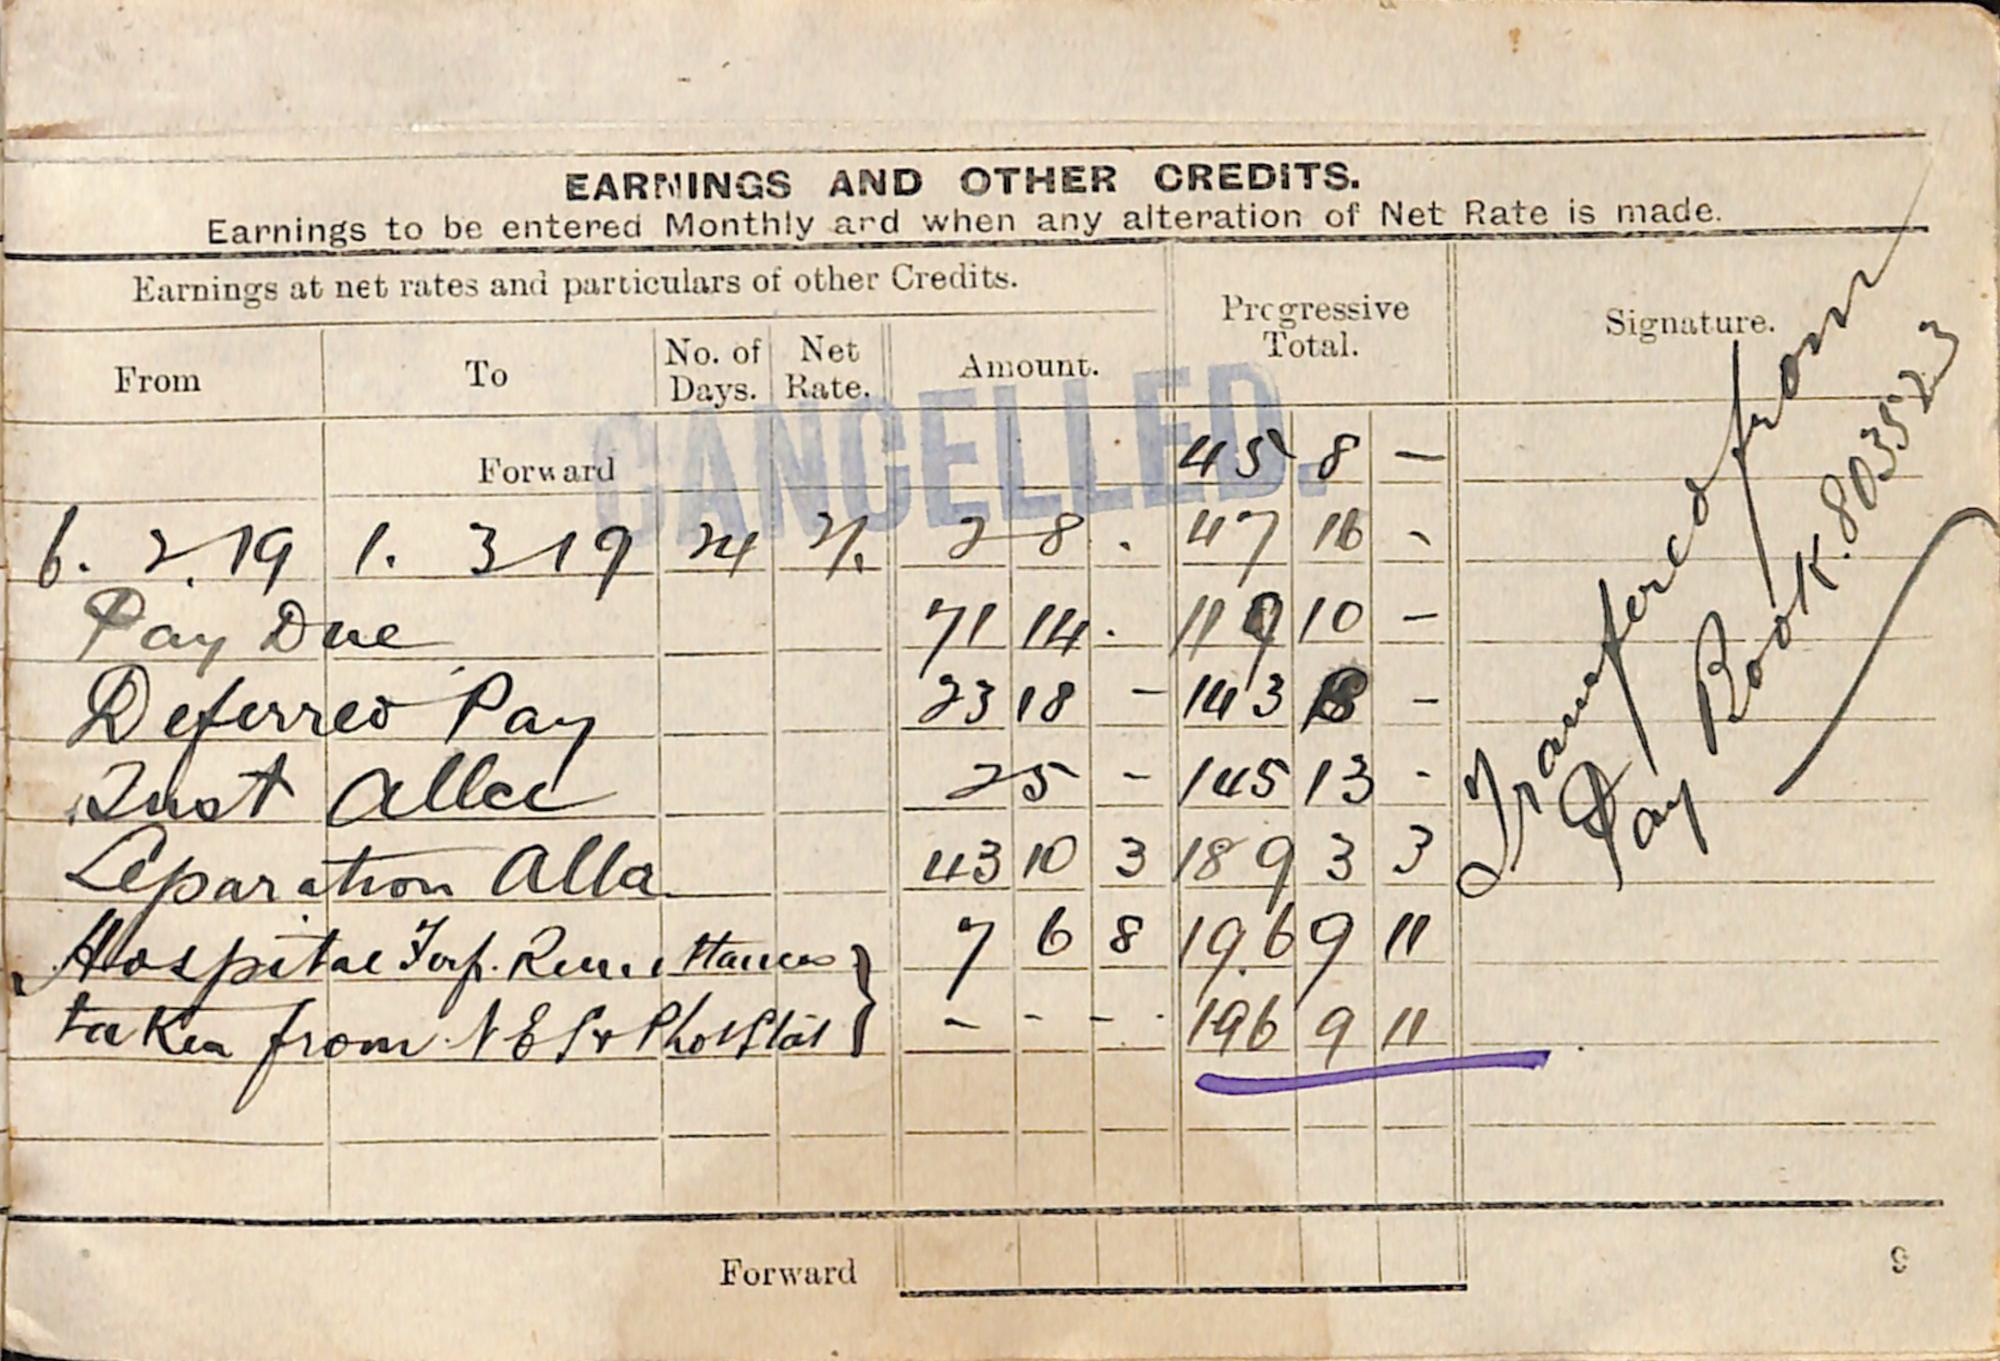 EARNINGS AND OTHER CREDITS.
Earnings to be entered Monthly and when any alteration of Net Rate is made.
Earnings at net rates and particulars of other Credits.
Progressive Total.
Signature.
From To No. of Days. Net Rate. Amount.
CANCELLED.
Forward 45 8 —
6. 2. 19 1. 3 19 24 2/. 2 8 . 47 16 -
Pay Due 71 14 . 119 10 —
Deferred Pay 23 18 - 143 8 -
Sust Allce 2 5 - 145 13 -
Separation Alla 43 10 3 189 3 3
Hospital Forf. Remittances 7 6 8 196 9 11
taken from Phot Stat - - - 196 9 11
Transfered from
Pay Book. 803523
Forward
9